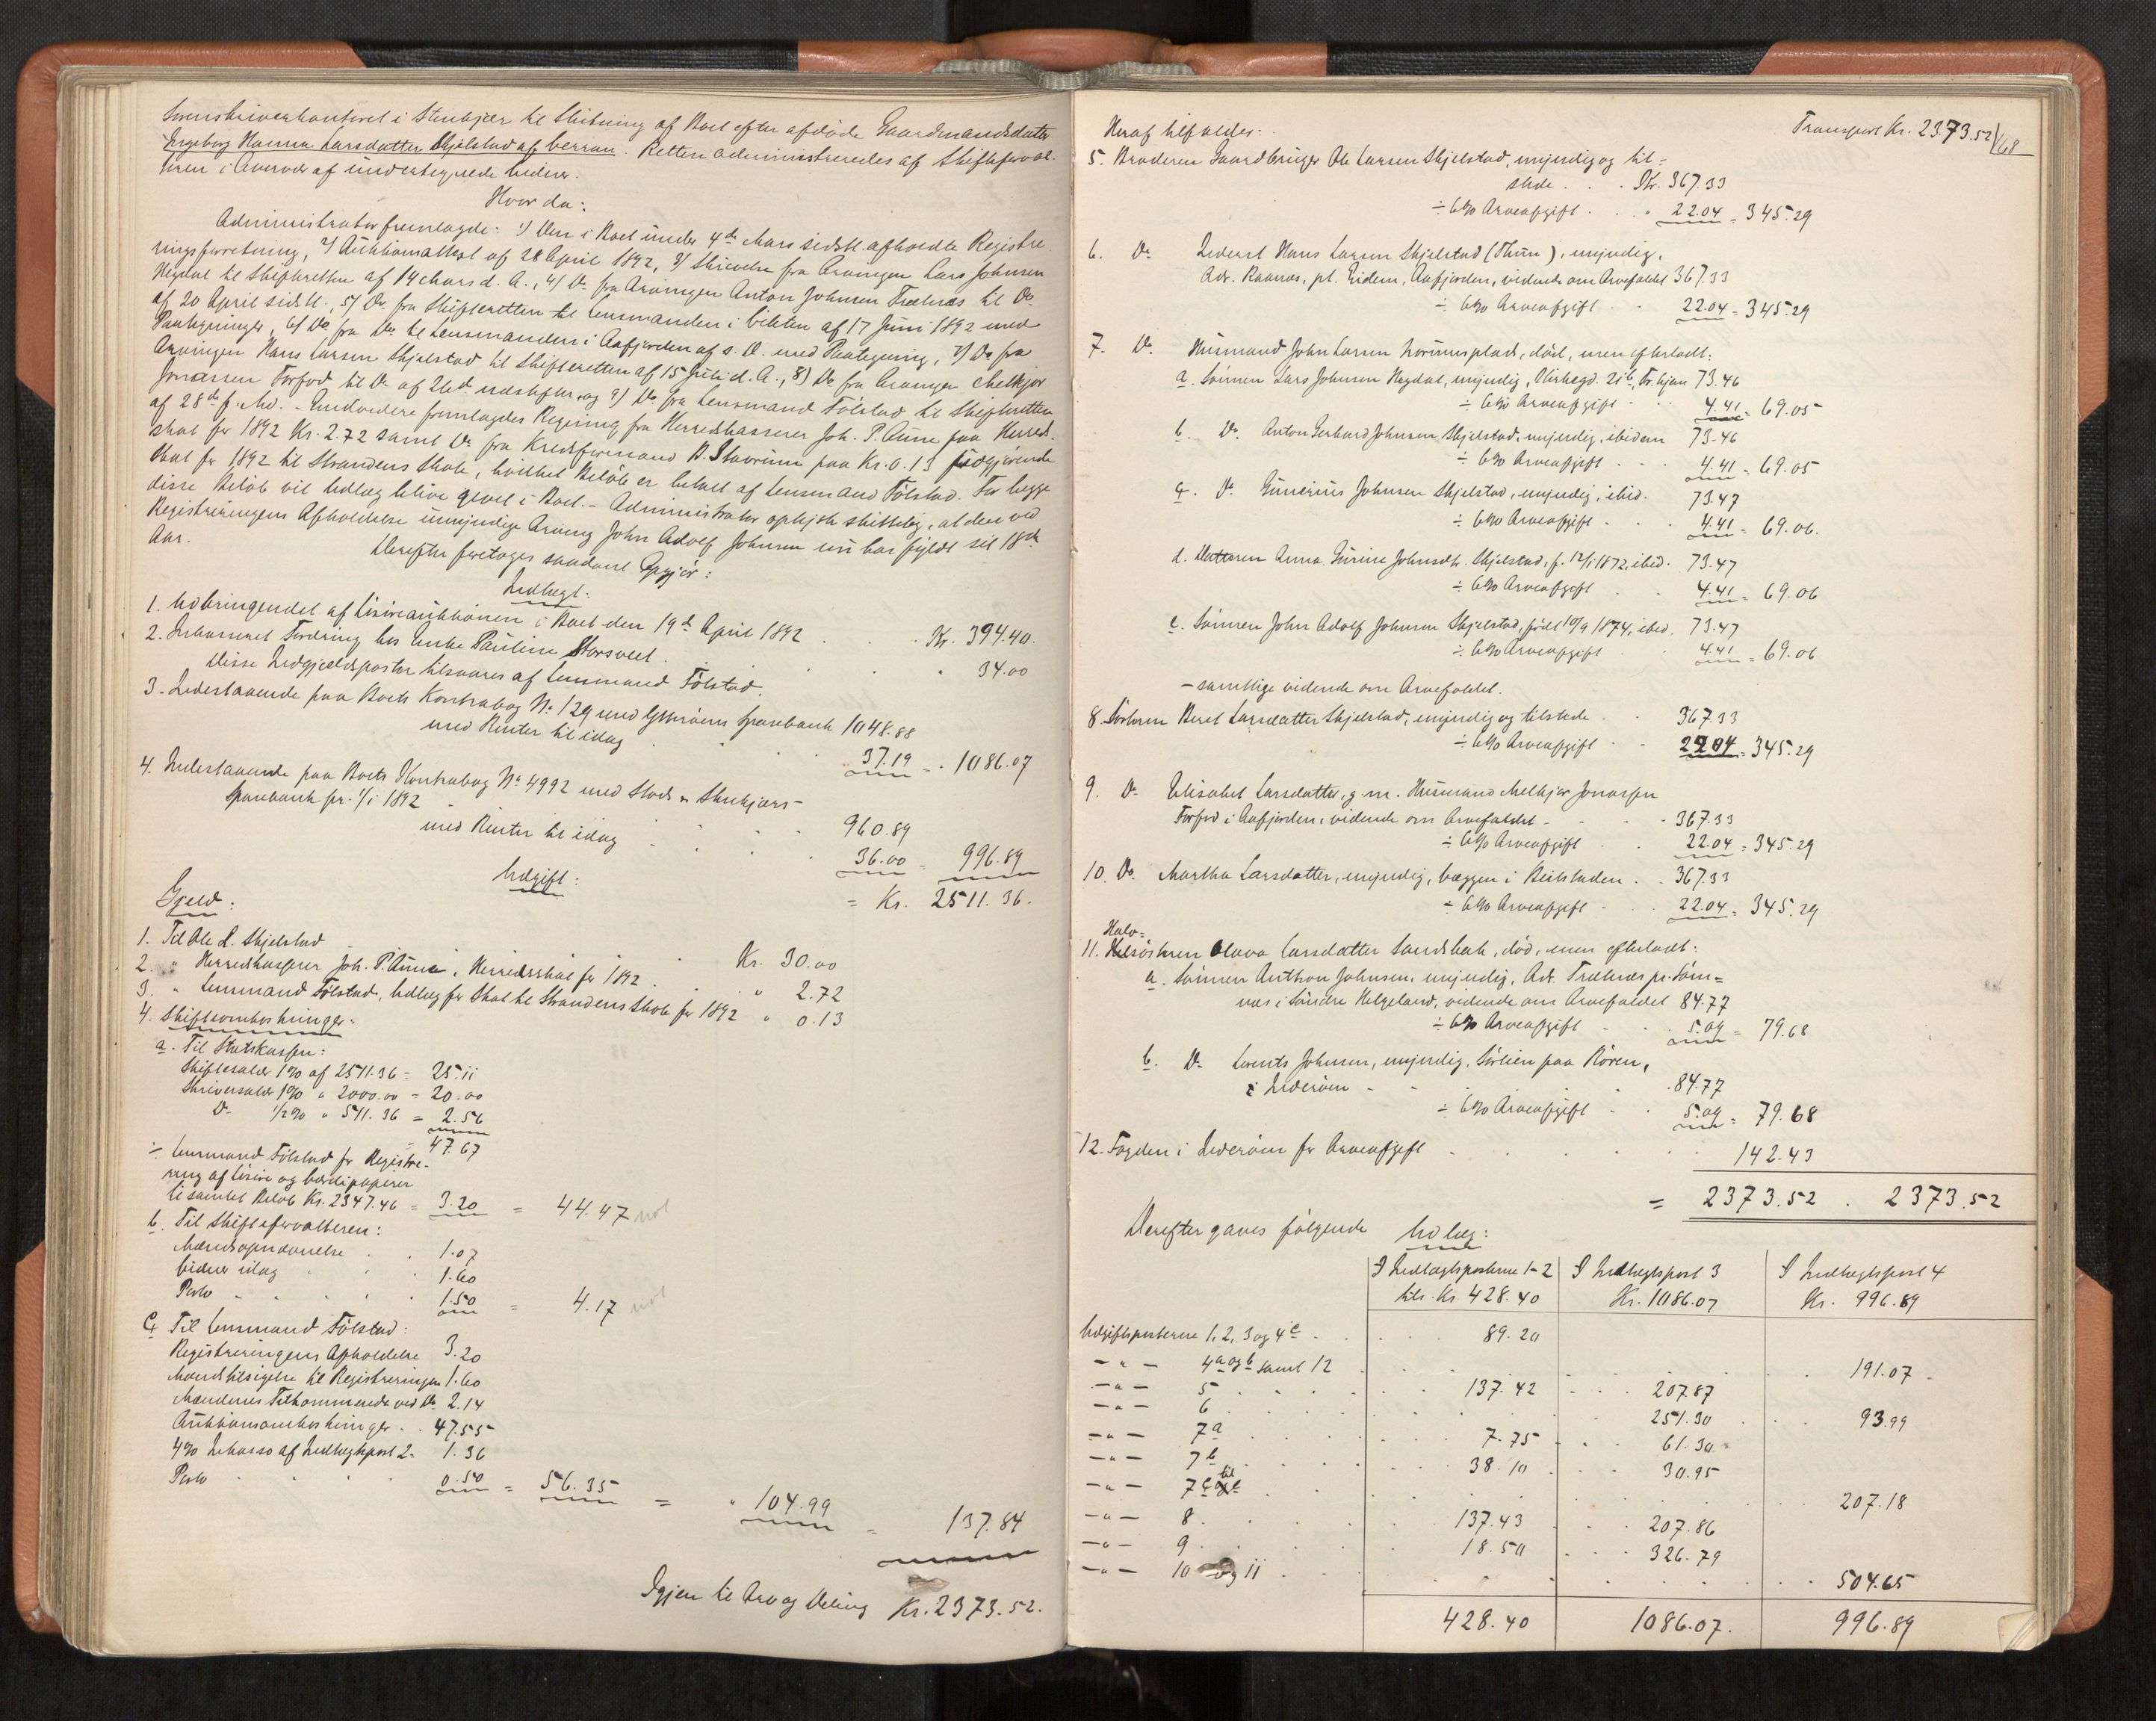 Sorenskriverkontoret i Stenkjær til Slutning af Boet efter afdøde Gaardmandsdatter
Ingeborg Hanna Larsdatter Skjelstad af Verran. Retten administreredes af Skifteforval-
teren i Overvær af undertegnede Vidner.
Hvor da:
Administrator fremlagde: 1) Den i Boet under 4de Mars sidstl. afholdte Registre-
ringsforretning, 2) Auktionsattest af 28 April 1892, 3) Skrivelse fra Arvingen Lars Johnsen
Hegdal til Skifteretten af 14 Mars d. A., 4) Do fra Arvingen Anton Johnsen Trælnes til Do
af 20 April sidstl., 5) Do fra Skifteretten til Lensmanden i Vikten af 17 Juni 1892 med
Paategninger, 6) Do fra Do til Lensmanden i Aafjorden af s. D. med Paategning, 7) Do fra
Arvingen Hans Larsen Skjelstad til Skifteretten af 15 Juli d. A., 8) Do fra Arvingen Melkjør
Jonassen Forfod til Do af 26d. næstefter, og 9) Do fra Lensmand Følstad til Skifteretten
af 28de f. Md. - Endvidere fremlagdes Regning fra Herredskasserer Joh. P. Aune paa Herred-
skat for 1892 Kr. 2.72 samt Do fra Kredsformand B. Stavrum paa Kr. 0.13 udgjørende
Skat for 1892 til Strandens Skole, hvilket Beløb er betalt af Lensmand Følstad. For begge
disse Beløb vil Udlæg blive givet i Boet. - Administrator oplyste skiftelig, at den ved
Registreringens Afholdelse umyndige Arving John Adolf Johnsen nu har fyldt sit 18de
Aar.
Derefter foretoges saadant Opgjør:
Indtægt:
1. Udbringendet af Løsøreauktionen i Boet den 19de April 1892 . . . Kr. 394.40.
2. Inkasseret Fordring hos Enke Pauline Storsveet . . . 34.00
Disse Indgjældsposter tilsvares af Lensmand Følstad.
3. Indestaaende paa Boets Kontrabog No 129 med Ytterøens Sparebank 1048.88
med Renter til idag . . . 37.19 = . 1086.07
4. Indestaaende paa Boets Kontrabog No 4992 med Stods & Stenkjærs-
Sparebank pr. 1/1 1892 . . . 960.89
med Renter til idag . . . 36.00 = 996.89
= Kr. 2511.36.
Udgift:
Gjeld:
1. Til Ole L. Skjelstad . . Kr. 30.00
2. " Herredskasserer Joh. P. Aune, Herredsskat for 1892 . . " 2.72
3. " Lensmand Følstad, Udlæg for Skat til Strandens Skole for 1892 " 0.13
4. Skifteomkostninger:
a. Til Statskassen:
Skiftesalær 1% af 2511.36 = 25.11
Skriversalær 1% " 2000.00 = 20.00
Do 1/2% " 511.36 = 2.56
47.67
÷ Lensmand Følstad for Registre-
ring af Løsøre og Værdipapirer
til samlet Beløb Kr. 2347.46 = 3.20 = 44.47 not
b. Til Skifteforvalteren:
Mændsopnævnelse . . 1.07
Vidner idag . . 1.60
Porto . . . 1.50 = 4.17 not
c. Til Lensmand Følstad:
Registreringens Afholdelse 3.20
Mændstilsigelse til Registreringen 1.60
Mændenes Tilkommende ved Do 2.14
Auktionsomkostninger . . 47.55
4% Inkasso af Indtægtspost 2. 1.36
Porto . . . 0.50 = 56.35 = " 104.99 = 137.84
Igjen til Arv og Deling Kr. 2373.52.
168
Transport Kr. 2373.52
Heraf tilfalder:
5. Broderen Gaardbruger Ole Larsen Skjelstad, myndig og til-
stede . . . Kr. 367.33
÷ 6% Arveafgift . . . 22.04 = 345.29
6. Do Inderst Hans Larsen Skjelstad (Thun), myndig,
Adr. Raanes, pt. Eidem, Aafjorden, vidende om Arvefaldet 367.33
÷ 6% Arveafgift . . 22.04 = 345.29
7. Do Husmand John Larsen Norumsplads, død, men efterladt:
a. Sønnen Lars Johnsen Hegdal, myndig, Kirkegd. 21b, Tr.hjem 73.46
÷ 6% Arveafgift . . 4.41 = 69.05
b. Do. Anton Gerhard Johnsen Skjelstad, myndig, ibidem 73.46
÷ 6% Arveafgift . . 4.41 = 69.05
c. Do Gunerius Johnsen Skjelstad, myndig, ibid. 73.47
÷ 6% Arveafgift . . 4.41 = 69.06.
d. Datteren Anna Gurine Johnsdtr. Skjelstad, f. 12/1 1872, ibid. 73.47
÷ 6% Arveafgift . . 4.41 = 69.06
e. Sønnen John Adolf Johnsen Skjelstad, født 10/9 1874, ibid. 73.47
÷ 6% Arveafgift . . 4.41 = 69.06
- samtlige vidende om Arvefaldet.
8. Søsteren Beret Larsdatter Skjelstad, myndig og tilstede . . 367.33
÷ 6% Arveafgift . . 22.04 = 345.29
9. Do Elisabet Larsdatter, g. m. Husmand Melkjør Jonassen
Forfod i Aafjorden, vidende om Arvefaldet - . . 367.33
÷ 6% Arveafgift . . 22.04 = 345.29
10. Do. Martha Larsdatter, myndig, Væggen i Beitstaden . . 367.33
÷ 6% Arveafgift . . 22.04 = 345.29
Halv-
11. Helsøsteren Olava Larsdatter Sandsbak, død, men efterladt:
a. Sønnen Anthon Johnsen, myndig, Adr. Trælnes pr. Søm-
nes i Søndre Helgeland, vidende om Arvefaldet 84.77
÷ 6% Arveafgift . . 5.09 = 79.68
b. Do Lorents Johnsen, myndig, Sørlien paa Røren,
i Inderøen - . . 84.77
÷ 6% Arveafgift . . 5.09 = 79.68
12. Fogden i Inderøen for Arveafgift . . . . 142.43
= 2373.52 . 2373.52
Derefter gaves følgende Udlæg:
I Indtægtsposterne 1-2 I Indtægtspost 3 I Indtægtspost 4
tils. Kr. 428.40 Kr. 1086.07 Kr. 996.89
Udgiftsposterne 1, 2, 3 og 4c . . 89.20
— " — 4a og b samt 12 . . . 191.07
— " — 5 . . 137.42 . . 207.87
— " — 6 . . 251.30 . . 93.99
— " — 7a . . 7.75 . . 61.30
— " — 7b . . 38.10 . . 30.95
— " — 7c til e . . 207.18
— " — 8 . . 137.43 . . 207.86
— " — 9 . . 18.50 . . 326.79
— " — 10 og 11 . . 504.65
428.40 1086.07. 996.89